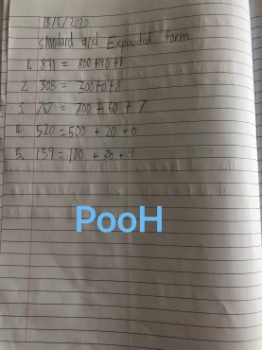 18/5/2020
Standard and Expanded form
1. 891 = 800+90+1
2. 308 = 300+0+8
3. 767 = 700 + 60 + 7
4. 520 = 500 + 20 + 0
5. 139 = 100 + 30 + 9
PooH